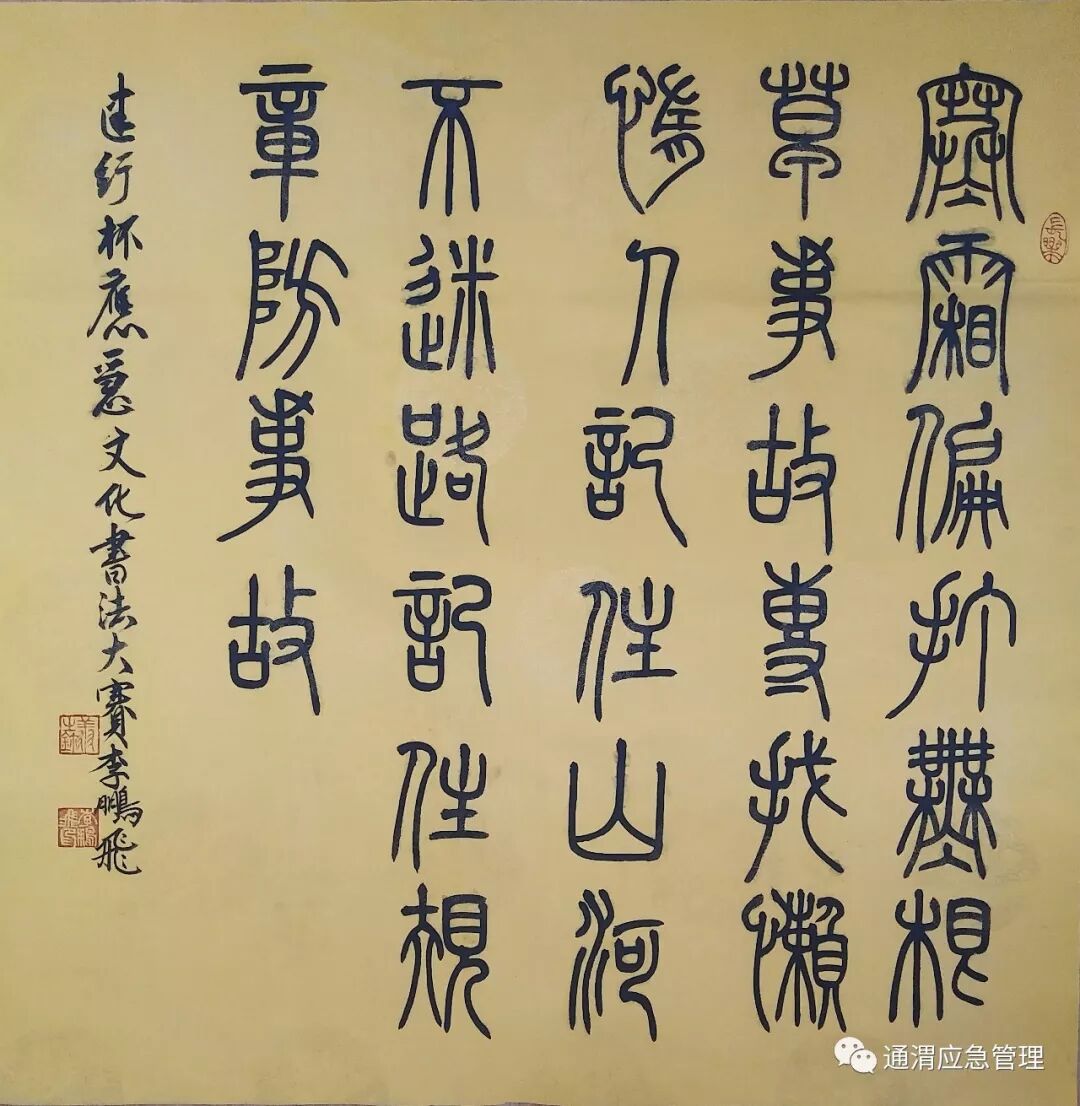 寒霜偏打無根
草事故專找懶
惰人記住山河
不迷路記住規
章防事故
建行杯應急文化書法大賽李鵬飛
長樂
通渭应急管理